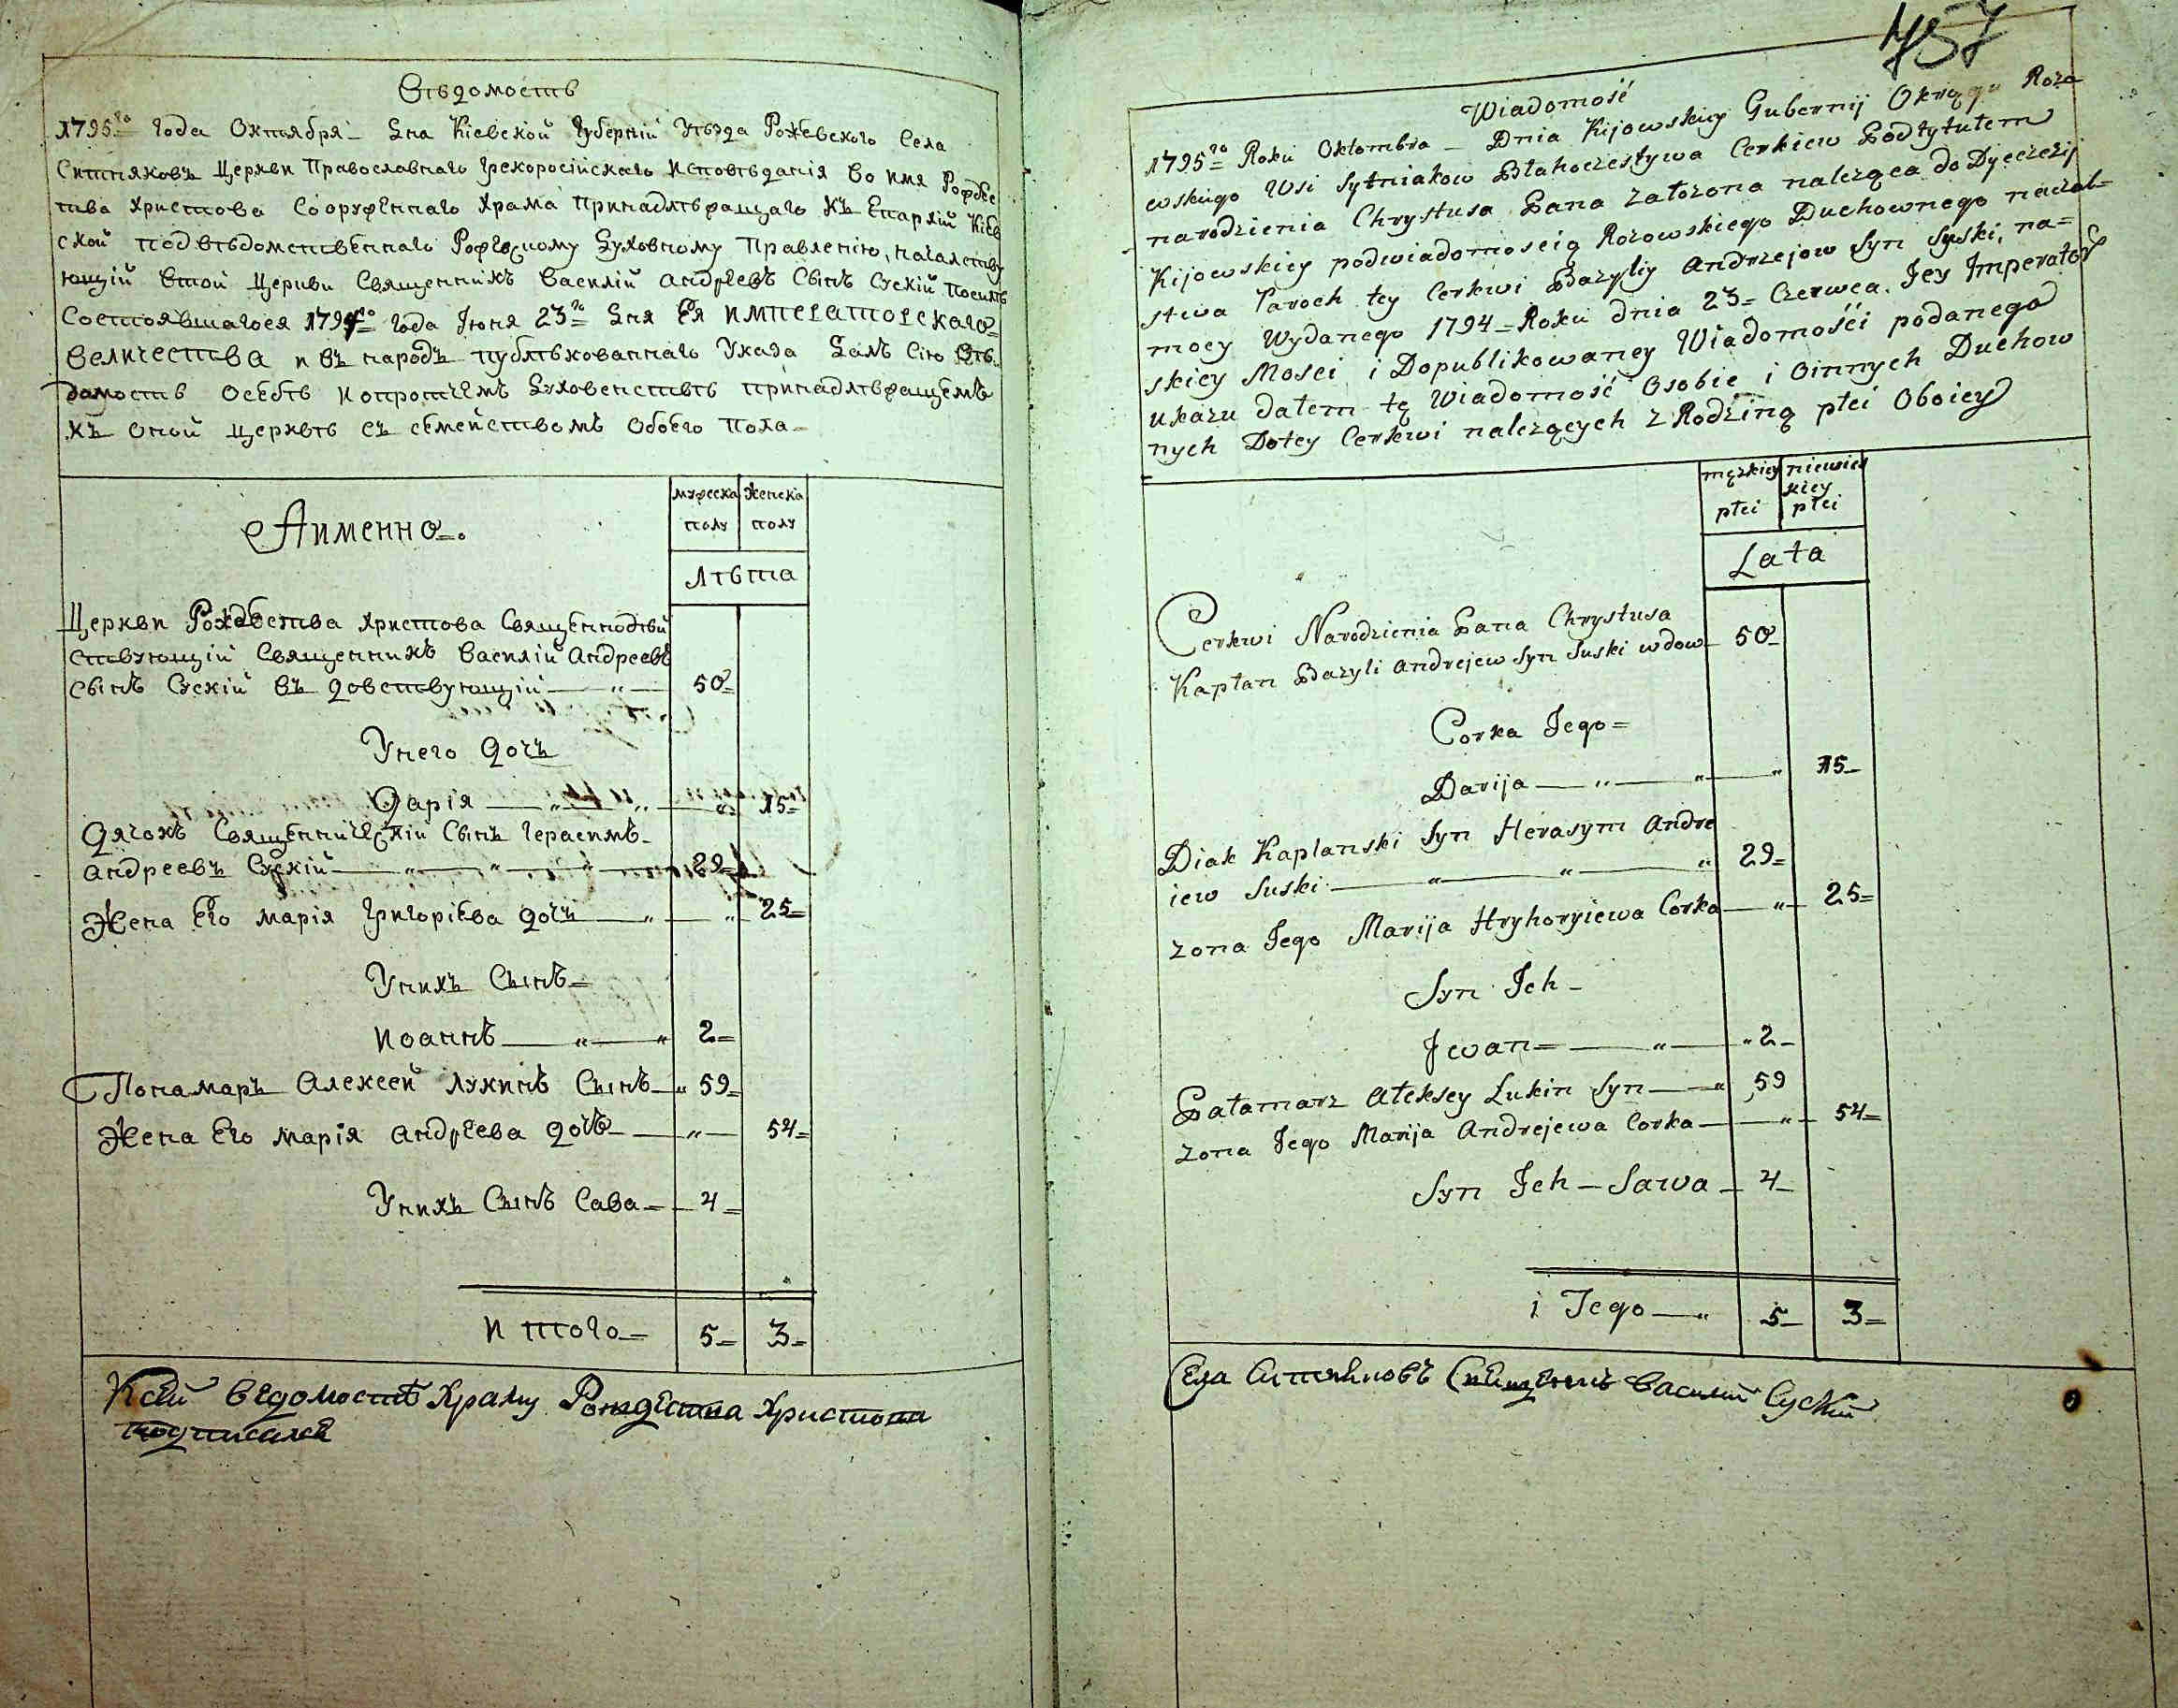 Вѣдомость
1795го года Октября – дня Кіевской Губерніи Уѣзда Рожевского Села
Ситняковъ Церкви Православнаго Грекоросійскаго Исповѣданія во имя Рождес
тва Христова Сооруженнаго Храма принадлѣжащаго къ Епархій Кіев
ской подвѣдомственнаго Рожевскому Духовному Правленію, началству
ющій втой Церкви Священникъ Василій Андреевъ Сынъ Сускій посилѣ
Состоявшагося 1794го года Іюня 23го дня Ея Императорскаго
Величества и въ народъ публѣкованнаго Указа Далъ Сію Вѣ
домость Осебѣ Ипротчемъ Духовенствѣ принадлѣжащемъ
къ оной Церквѣ съ семействомъ Обоего пола –
Аименно –.
мужеска полу
женска полу
Лѣта
Церкви Рождества Христова Священнодѣй
ствующій Священникъ Василій Андреевъ
Сынъ Сускій въ довствующій — „ — 50
Унего дочъ
Дарія — „ — „ — „ 15
Дячокъ Священническій Сынъ Герасимъ
Андреевъ Сускій — „ — „ — „ — 29
Жена Его Марія Григоріева дочъ — „ — „ 25
Унихъ Сынъ
Иоаннъ — „ — „ 2
Понамаръ Алексей Лукинъ Сынъ — „ 59
Жена Его Марія Андреева дочъ — „ — 54
Унихъ Сынъ Сава — 4
И того — 5 – 3
Ксей ведомостѣ Храму Рождества Христова
подписалса
757
Wiadomość
1795go Roku Oktombra – Dnia Kijowskiey Gubernij Okręgu Roża
ewskiego Wsi Sytniakow Błahoczestywa Cerkiew Podtytutem
narodzienia Chrystusa Pana założona należąca do Dyeczezij
Kijowskiey podwiadomoscią Rożowskiego Duchownego naczal=
stwa Paroch tey Cerkwi Bazyliy Andrzejow Syn Suski, na=
mocy Wydanego 1794 – Roku dnia 23 = Czerwca. Jey Imperator
skiey Mosci i Dopublikowaney Wiadomości podanego
ukazu datem tę Wiadomość Osobie i Oinnych Duchow
nych Dotey Cerkwi należących z Rodziną płci Oboiey
męzkiey płci
niewies kiey płci
Lata
Cerkwi Narodzienia Pana Chrystusa
Kapłan Bazyli Andrejew Syn Suski wdow – 50
Corka Jego =
Darija — „ — „ — „ 15 –
Diak Kaplanski Syn Herasym Andre
iew Suski — „ — „ — „ 29 =
zona Jego Marija Hryhoryiewa Corka — „ — 25 =
Syn Jch –
Jwan = — „ — „ 2 –
Pałamarz Ałeksey Łukin Syn — „ 59
zona Jego Marija Andrejewa Corka — „ — 54 =
Syn Jch – Sawa – 4 –
i Jego — „ 5 – 3 =
Села Ситняковъ Священикъ Василий Суский